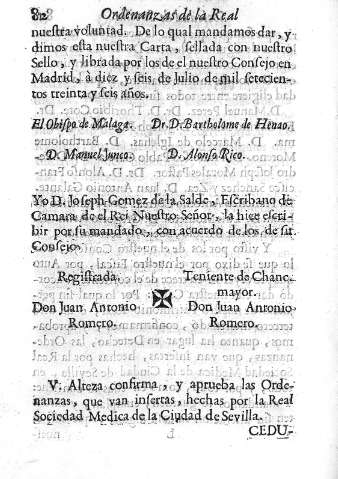 82 Ordenanzas de la Real
nuestra voluntad. De lo qual mandamos dar, y
dimos esta nuestra Carta, sellada con nuestro
Sello, y librada por los de el nuestro Consejo en
Madrid, à diez y seis de Julio de mil setecien-
tos treinta y seis años.
El Obispo de Malaga. Dr. D. Bartholome de Henao.
D. Manuel Junco. D. Alonso Rico.
Yo D. Joseph Gomez de la Salde, Escribano de
Camara de el Rei Nuestro Señor, la hice escri-
bir por su mandado, con acuerdo de los de su
Consejo.
Registrada. Teniente de Chanc.
mayor.
Don Juan Antonio Don Juan Antonio
Romero. Romero.
V. Alteza confirma, y aprueba las Orde-
nanzas, que van insertas, hechas por la Real
Sociedad Medica de la Ciudad de Sevilla.
CEDU-